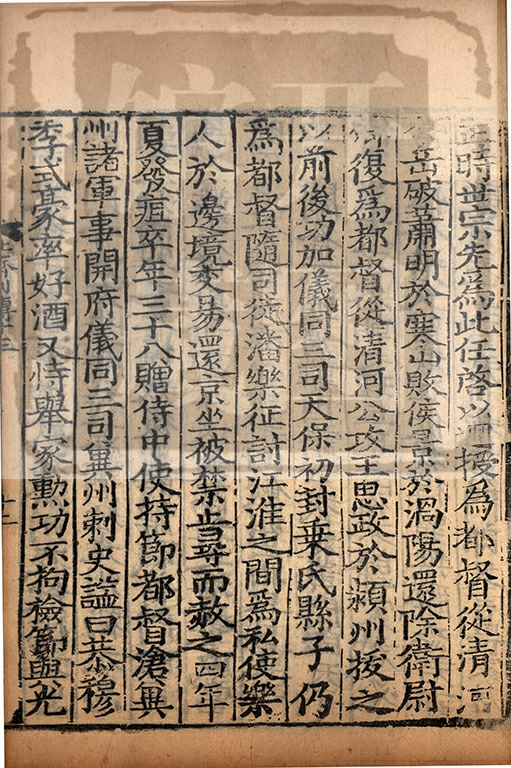 正時世宗先為此任啓以迴授為都督從清河
岳破蕭明於寒山敗侯景於渦陽還除衛尉
卿復為都督從清河公攻王思政於潁州拔之
以前後功加儀同三司天保初封乗氏縣子仍
為都督隨司徒潘樂征討江淮之間為私使樂
人於邊境交易還京坐被禁止尋而赦之四年
夏發疽卒年三十八贈侍中使持節都督滄冀
州諸軍事開府儀同三司冀州刺史謚曰恭穆
季式豪率好酒又恃舉家勳功不拘檢節與光